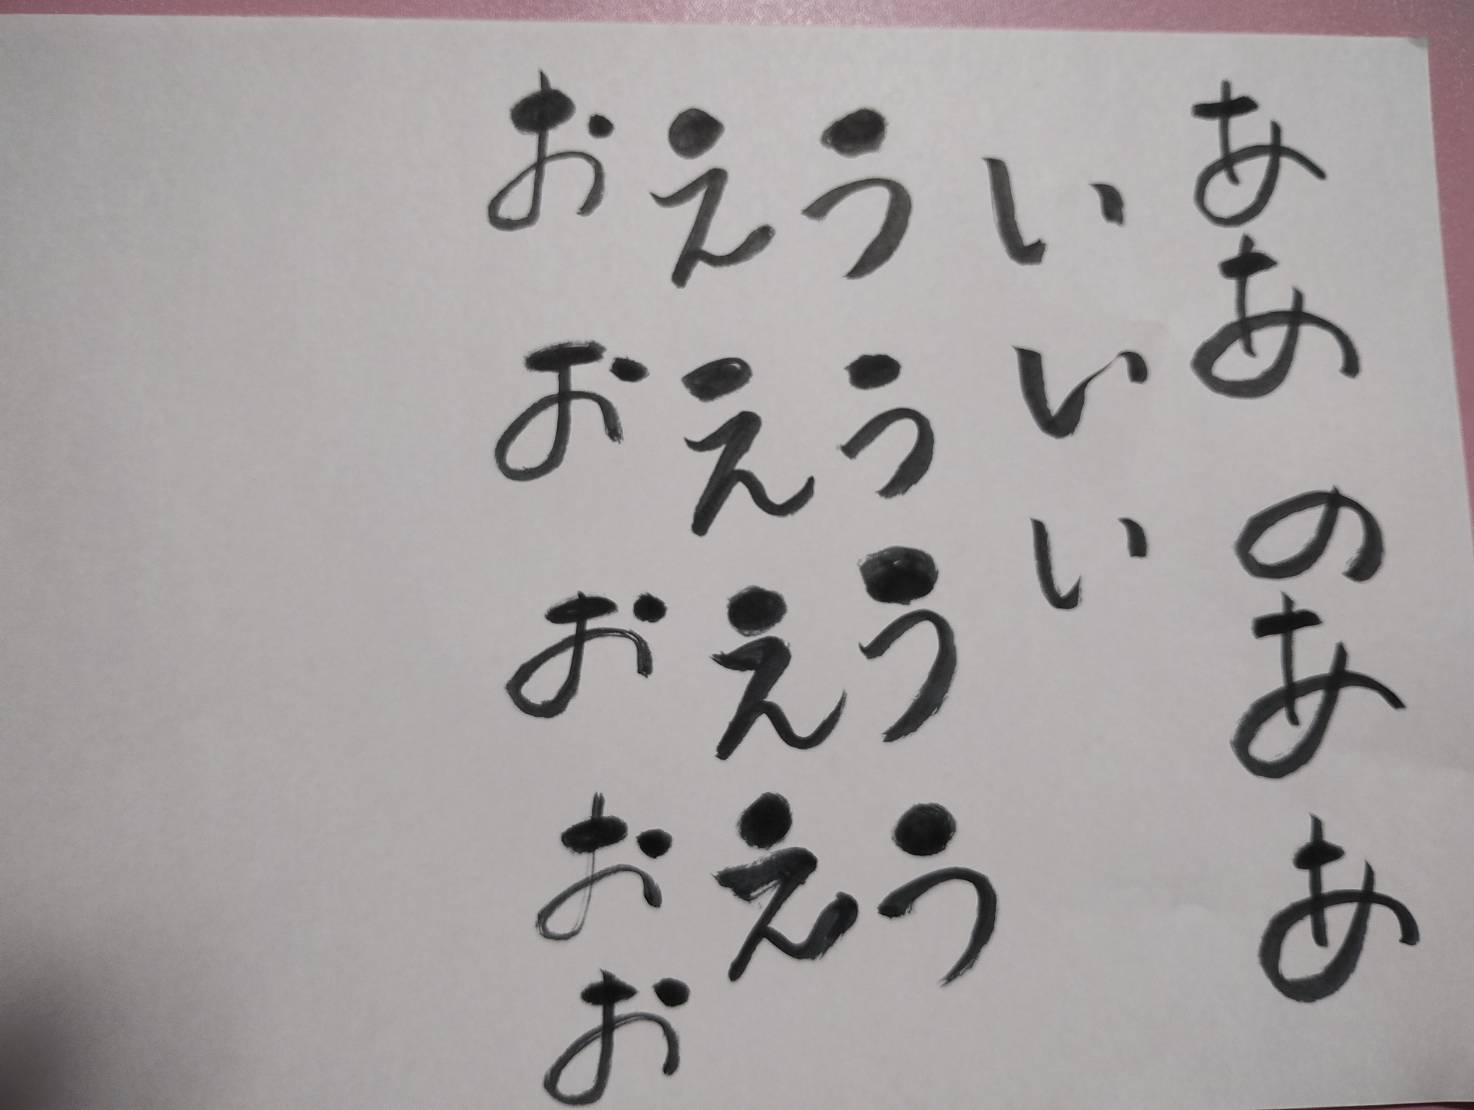 ああのああ
いいい
うううう
ええええ
おおおおお